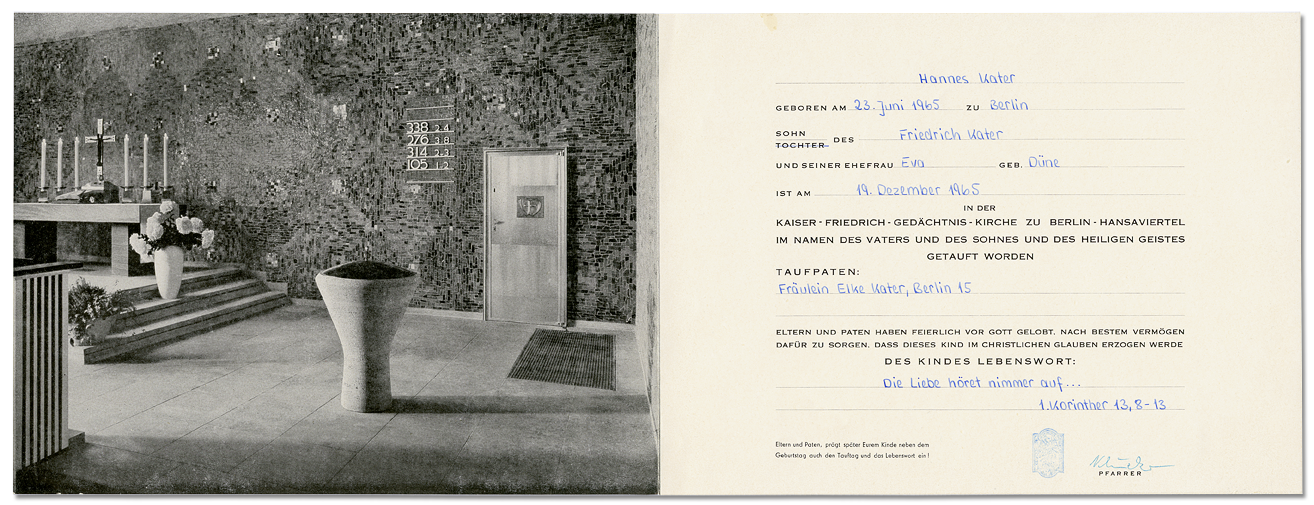 338 2 4
276 3 8
314 2 3
105 1 2
Hannes Kater
GEBOREN AM 23. Juni 1965 ZU Berlin
SOHN
TOCHTER DES Friedrich Kater
UND SEINER EHEFRAU Eva GEB. Düne
IST AM 19. Dezember 1965
IN DER
KAISER-FRIEDRICH-GEDÄCHTNIS-KIRCHE ZU BERLIN-HANSAVIERTEL
IM NAMEN DES VATERS UND DES SOHNES UND DES HEILIGEN GEISTES
GETAUFT WORDEN
TAUFPATEN:
Fräulein Elke Kater, Berlin 15
ELTERN UND PATEN HABEN FEIERLICH VOR GOTT GELOBT, NACH BESTEM VERMÖGEN
DAFÜR ZU SORGEN, DASS DIESES KIND IM CHRISTLICHEN GLAUBEN ERZOGEN WERDE
DES KINDES LEBENSWORT:
Die Liebe höret nimmer auf...
1. Korinther 13, 8-13
Eltern und Paten, prägt später Eurem Kinde neben dem
Geburtstag auch den Tauftag und das Lebenswort ein!
PFARRER